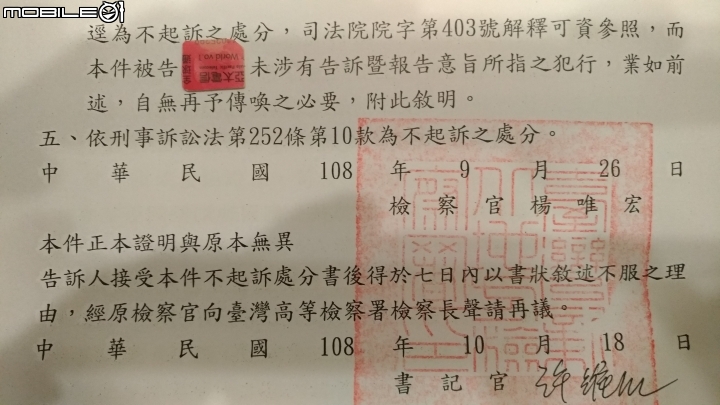 MOBILE01
逕為不起訴之處分，司法院院字第403號解釋可資參照，而
本件被告 未涉有告訴暨報告意旨所指之犯行，業如前
述，自無再予傳喚之必要，附此敘明。
五、依刑事訴訟法第252條第10款為不起訴之處分。
中華民國108年9月26日
檢察官楊唯宏
本件正本證明與原本無異
告訴人接受本件不起訴處分書後得於七日內以書狀敘述不服之理
由，經原檢察官向臺灣高等檢察署檢察長聲請再議。
中華民國108年10月18日
書記官